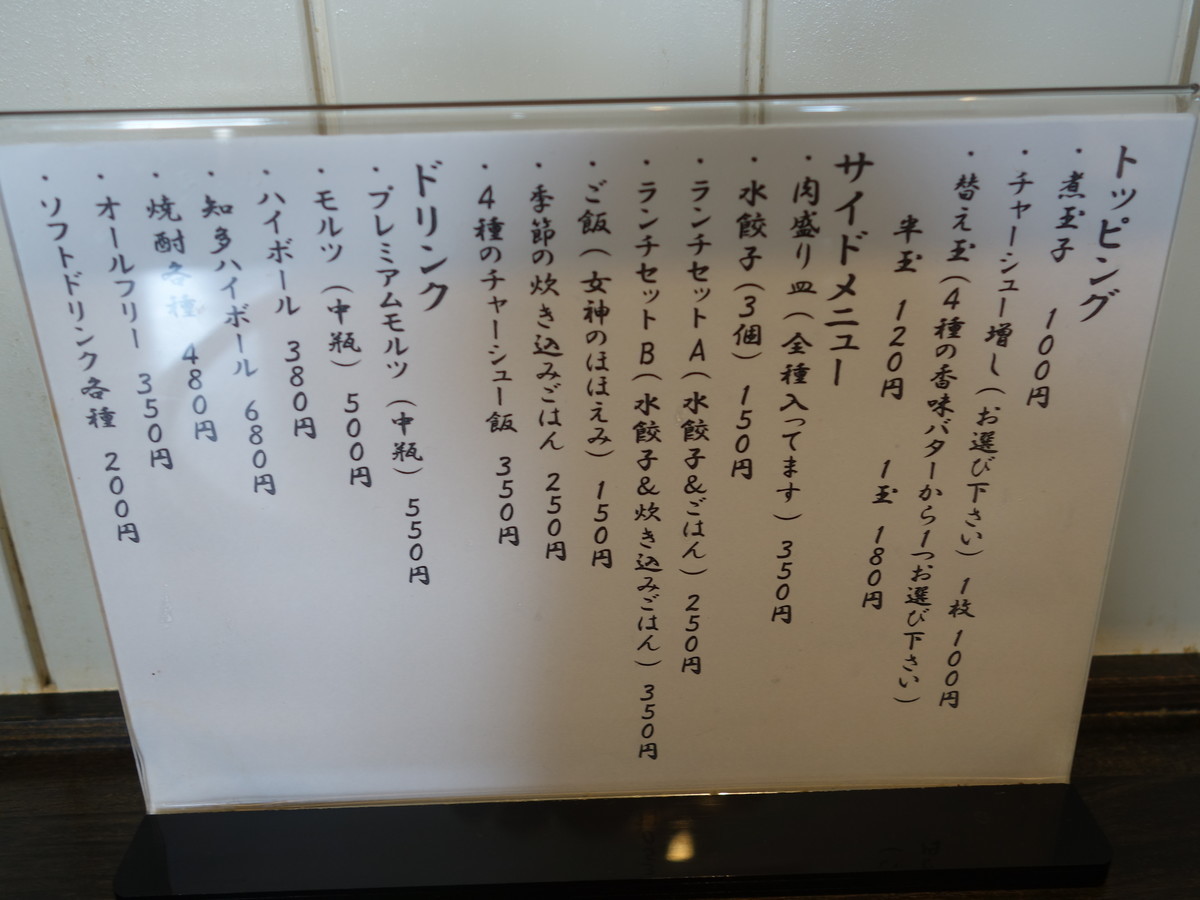 トッピング
・煮玉子 100円
・チャーシュー増し(お選び下さい) 1枚 100円
・替え玉(4種の香味バターから1つお選び下さい)
半玉 120円 1玉 180円
サイドメニュー
・肉盛り皿(全種入ってます) 350円
・水餃子(3個) 150円
・ランチセットA(水餃子&ごはん) 250円
・ランチセットB(水餃子&炊き込みごはん) 350円
・ご飯(女神のほほえみ) 150円
・季節の炊き込みごはん 250円
・4種のチャーシュー飯 350円
ドリンク
・プレミアムモルツ(中瓶) 550円
・モルツ(中瓶) 500円
・ハイボール 380円
・知多ハイボール 680円
・焼酎各種 480円
・オールフリー 350円
・ソフトドリンク各種 200円